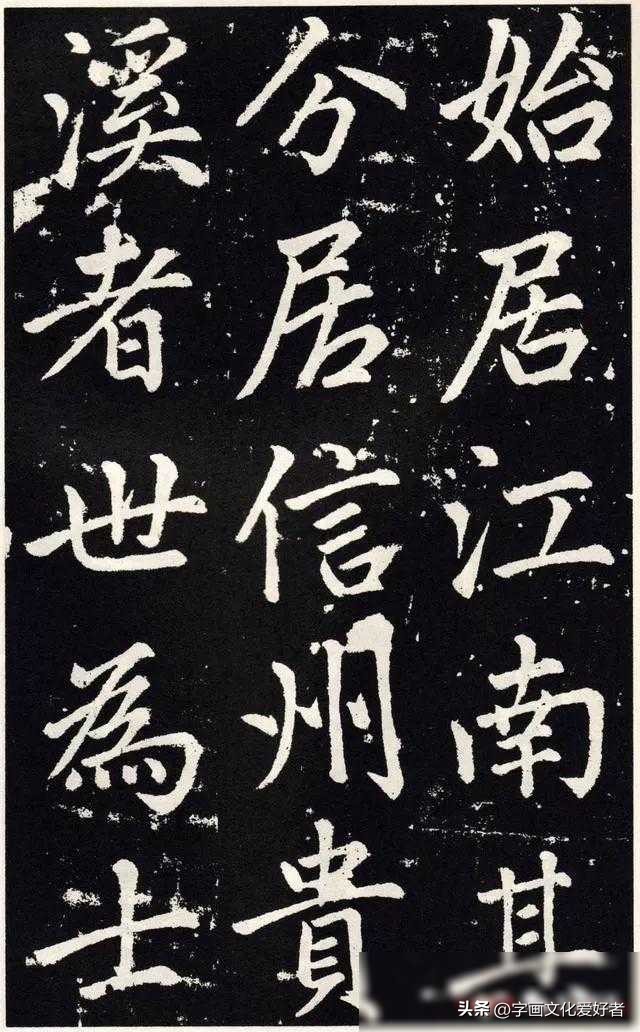 始居江南其
分居信州貴
溪者世為士
头条 @字画文化爱好者